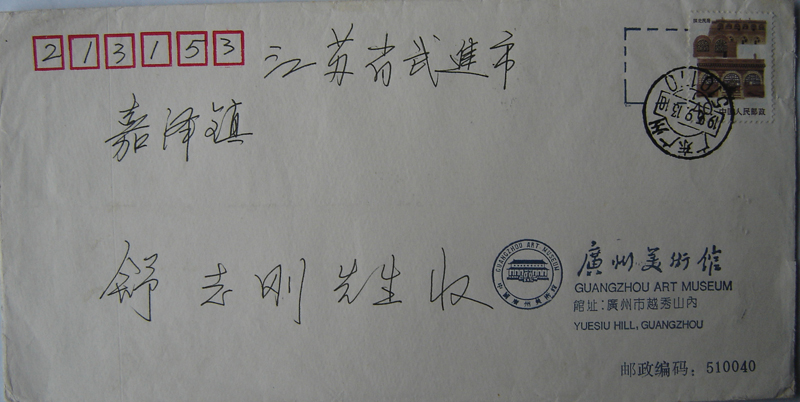 213153
江苏省武進市
嘉泽镇
舒志刚先生收
中国人民邮政
广东广州
GUANGZHOU ART MUSEUM
廣州美術館
GUANGZHOU ART MUSEUM
館址:廣州市越秀山內
YUESIU HILL, GUANGZHOU
邮政编码: 510040